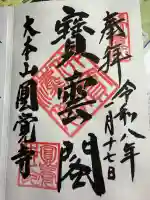 奉拝
令和八年
一月十七日
寳雲閣
大本山圓覺寺